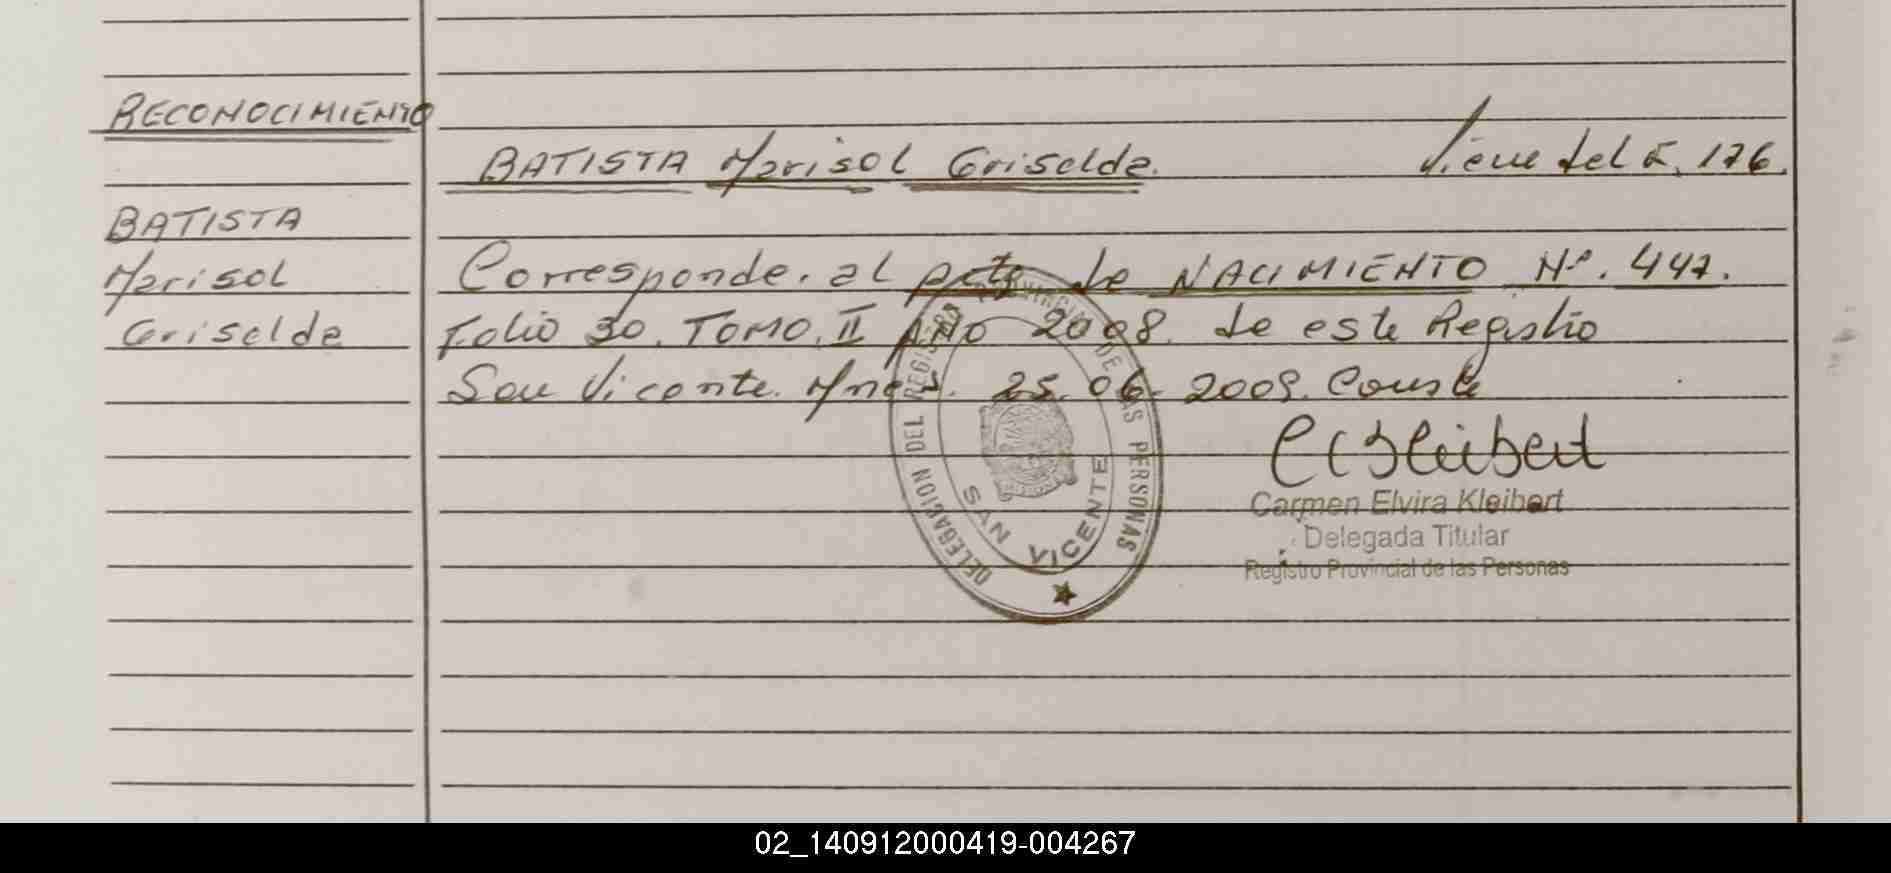 RECONOCIMIENTO
BATISTA Marisol Griselda. Viene del F. 176.
BATISTA
Marisol
Griselda
Corresponde. al acta de NACIMIENTO Nº. 447.
Folio 30. TOMO. II Año 2008. de este Registro
San Vicente. Mnes. 25.06. 2009. Conste
Carmen Elvira Kleibert
Delegada Titular
Registro Provincial de las Personas
DELEGACION DEL REGISTRO PROVINCIAL DE LAS PERSONAS
SAN VICENTE
02_140912000419-004267